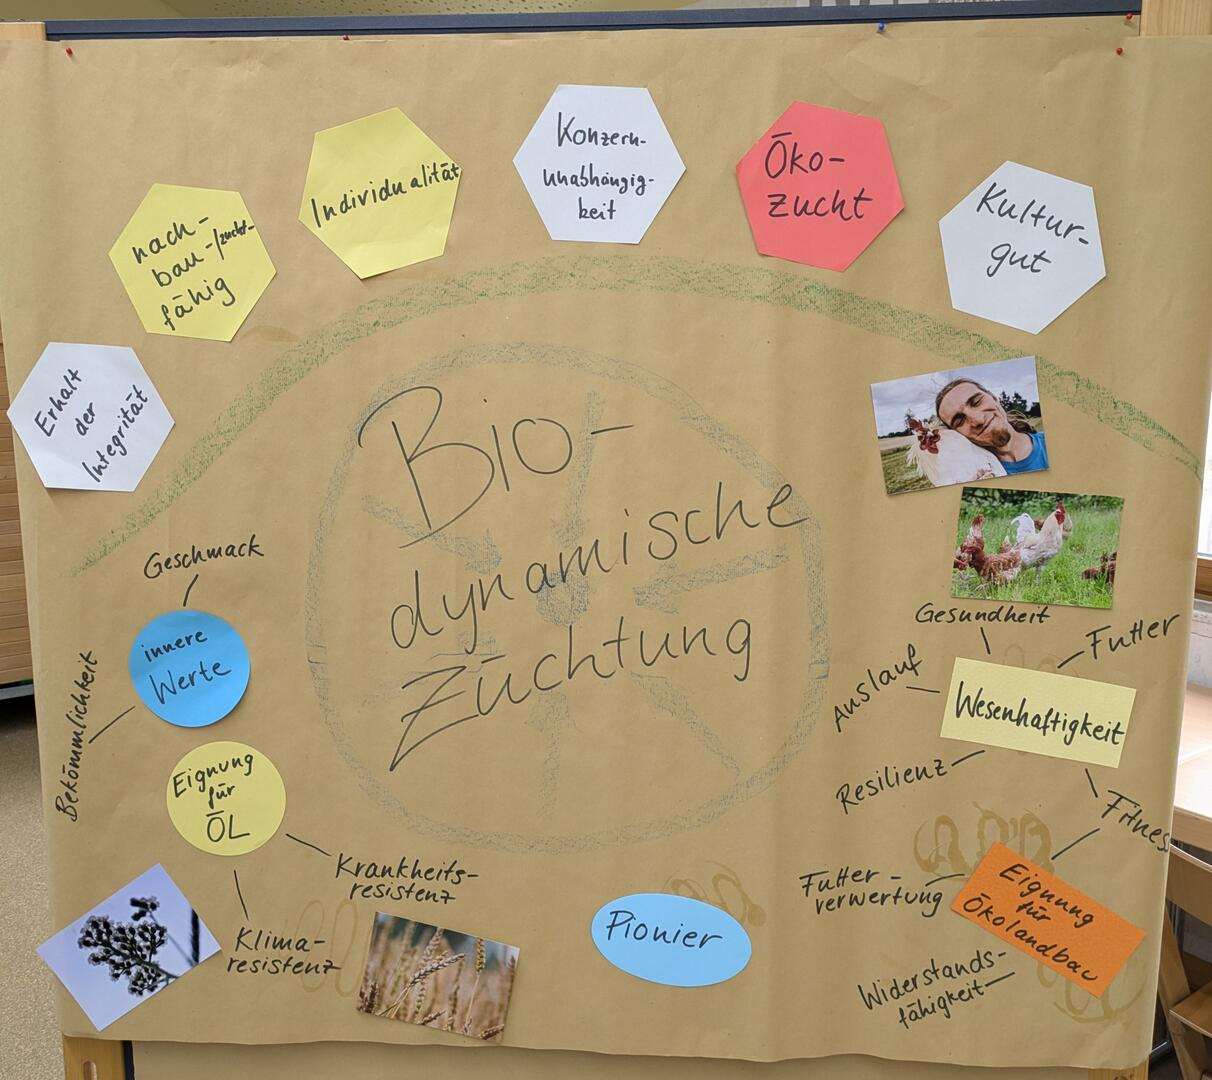 Konzern-
unabhängig-
keit
Öko-
zucht
Individualität
Kultur-
gut
nach-
bau-/zucht-
fähig
Erhalt
der
Integrität
Bio-
dynamische
Züchtung
Geschmack
innere
Werte
Bekömmlichkeit
Eignung
für
ÖL
Krankheits-
resistenz
Klima-
resistenz
Pionier
Gesundheit
Futter
Auslauf
Wesenhaftigkeit
Resilienz
Fitness
Eignung
für
Ökolandbau
Futter-
verwertung
Widerstands-
fähigkeit